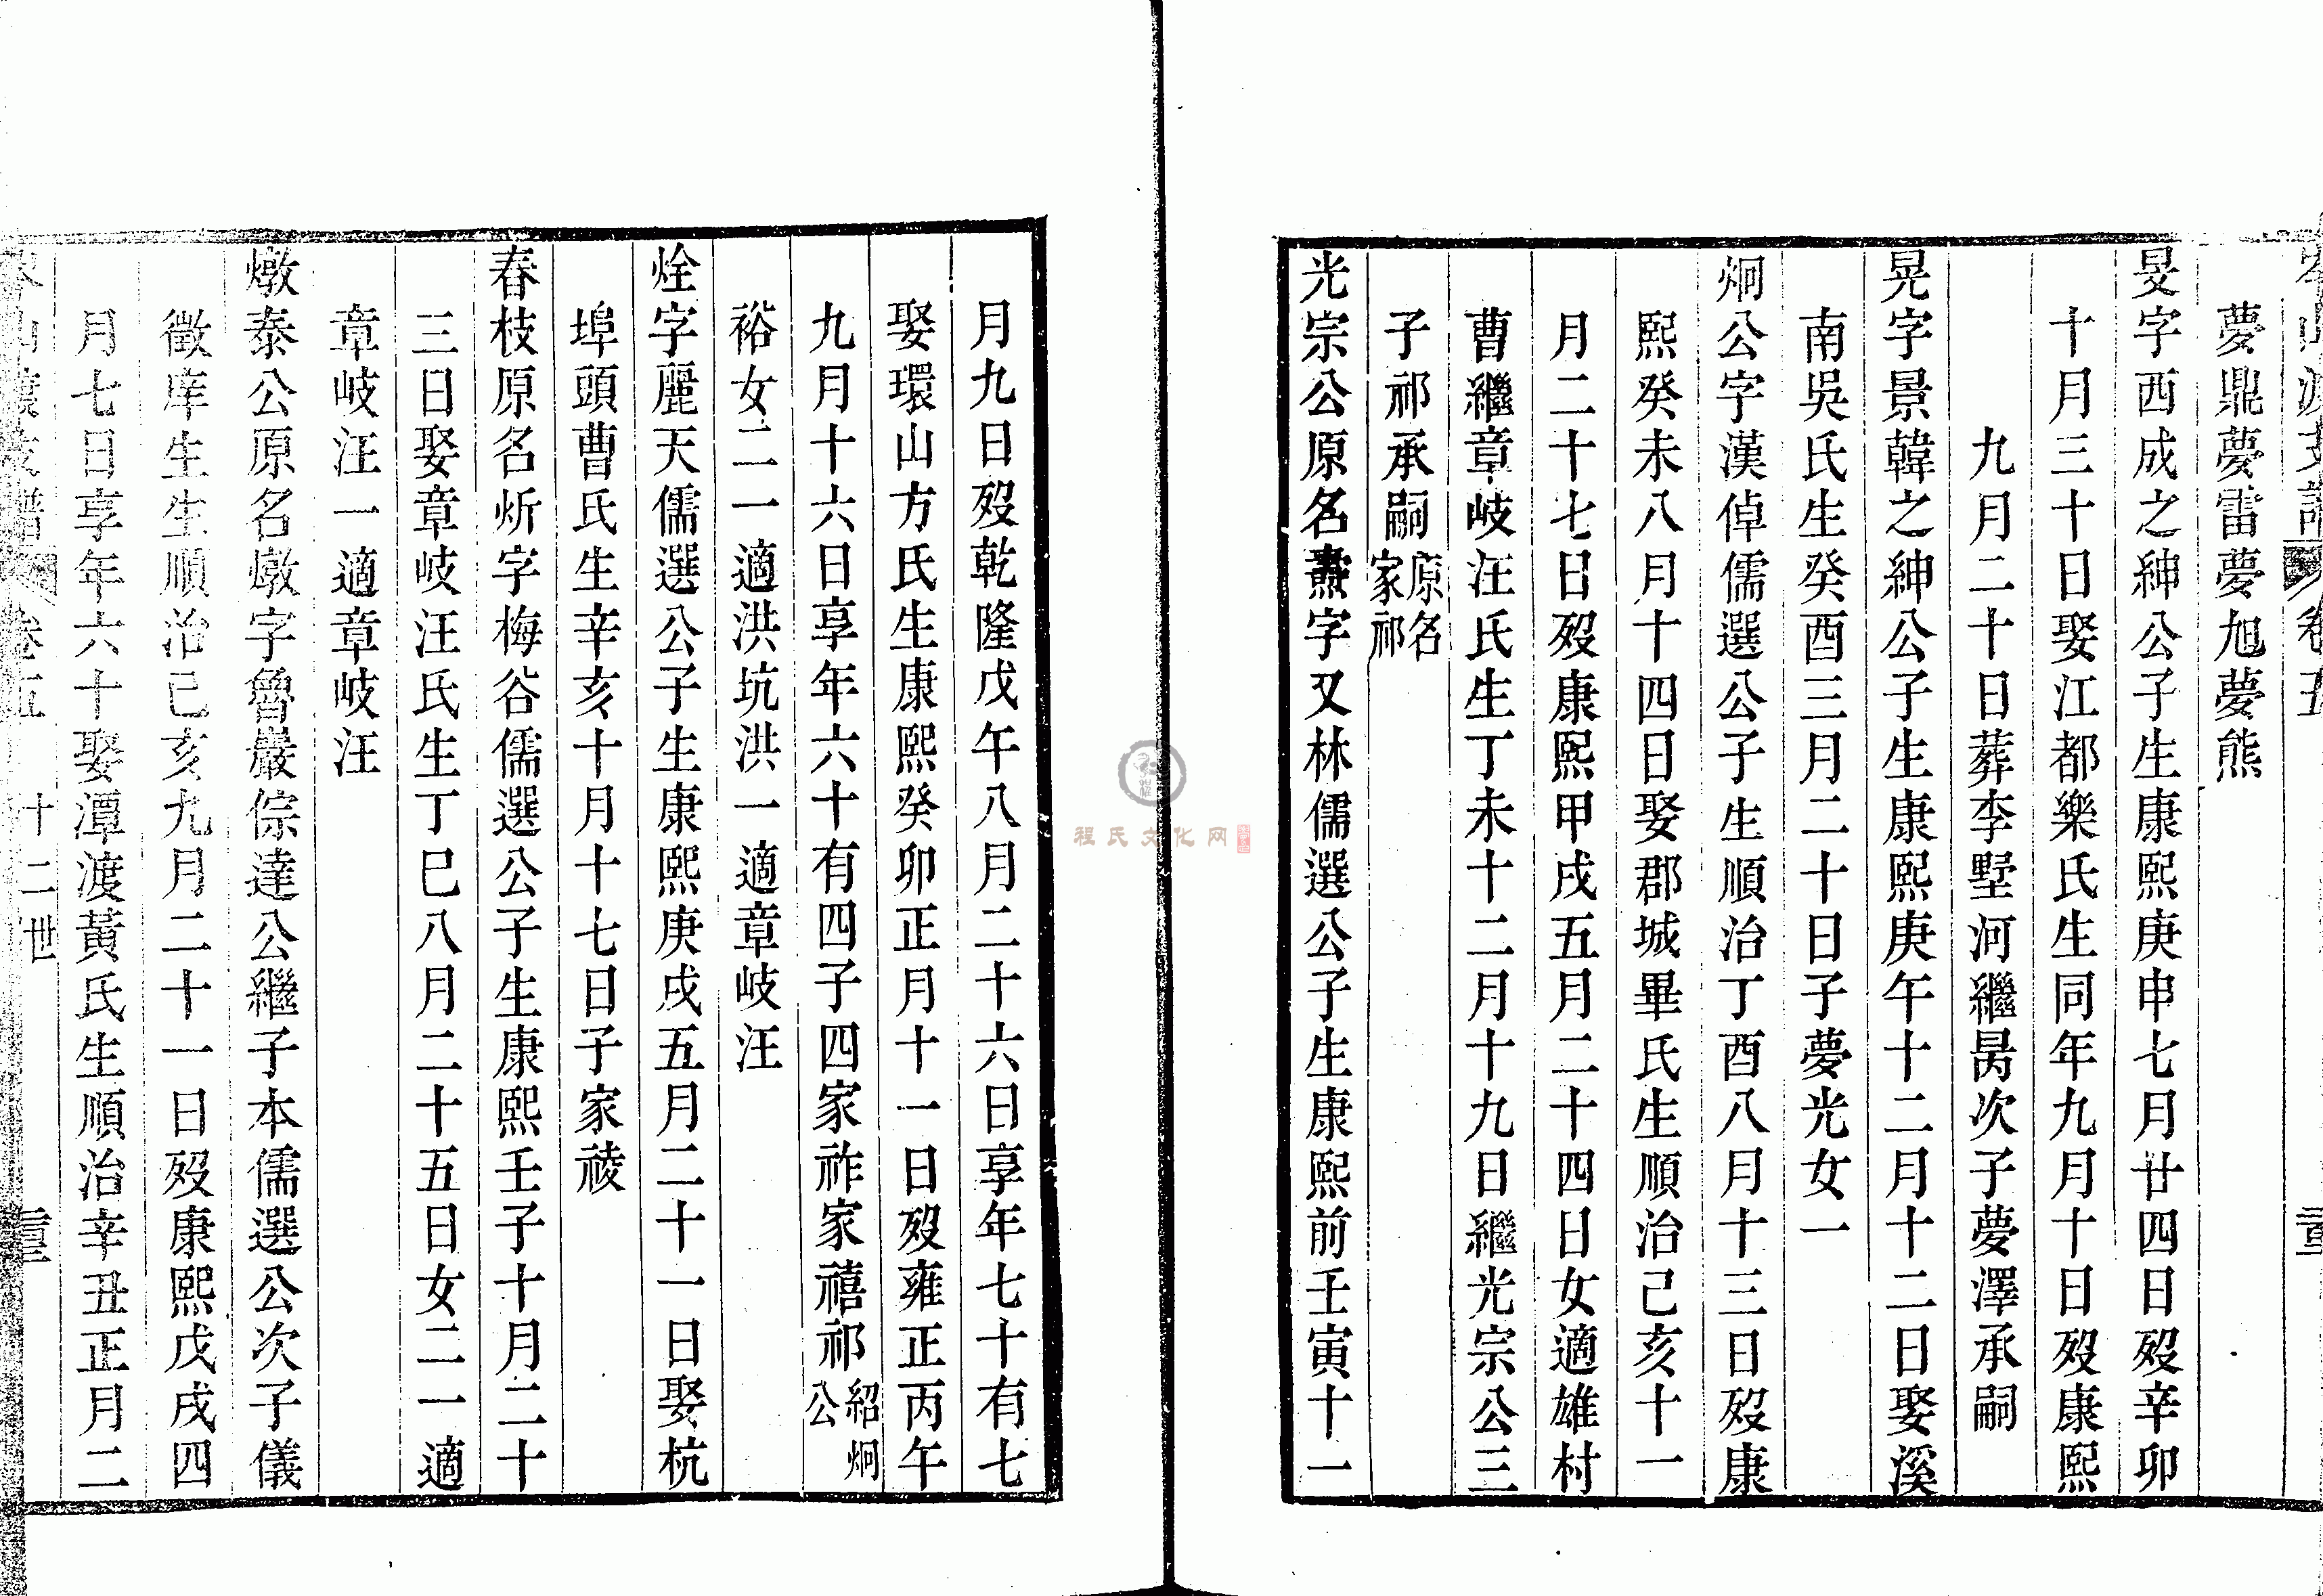 夢鼎夢雷夢旭夢熊
旻字西成之紳公子生康熙庚申七月廿四日歿辛卯
十月三十日娶江都樂氏生同年九月十日歿康熙
九月二十日葬李墅河繼昺次子夢澤承嗣
晃字景韓之紳公子生康熙庚午十二月十二日娶溪
南吳氏生癸酉三月二十日子夢光女一
炯公字漢倬儒選公子生順治丁酉八月十三日歿康
熙癸未八月十四日娶郡城畢氏生順治己亥十一
月二十七日歿康熙甲戌五月二十四日女適雄村
曹繼章岐汪氏生丁未十二月十九日繼光宗公三
子祁承嗣原名家祁
光宗公原名燾字又林儒選公子生康熙前壬寅十一
月九日歿乾隆戊午八月二十六日享年七十有七
娶環山方氏生康熙癸卯正月十一日歿雍正丙午
九月十六日享年六十有四子四家祚家禧祁紹炯公
裕女二一適洪坑洪一適章岐汪
烇字麗天儒選公子生康熙庚戌五月二十一日娶杭
埠頭曹氏生辛亥十月十七日子家祾
春枝原名炘字梅谷儒選公子生康熙壬子十月二十
三日娶章岐汪氏生丁巳八月二十五日女二一適
章岐汪一適章岐汪
燉泰公原名燉字魯巖倧達公繼子本儒選公次子儀
徵庠生生順治己亥九月二十一日歿康熙戊戌四
月七日享年六十娶潭渡黃氏生順治辛丑正月二
卷五 十二世
程氏文化网